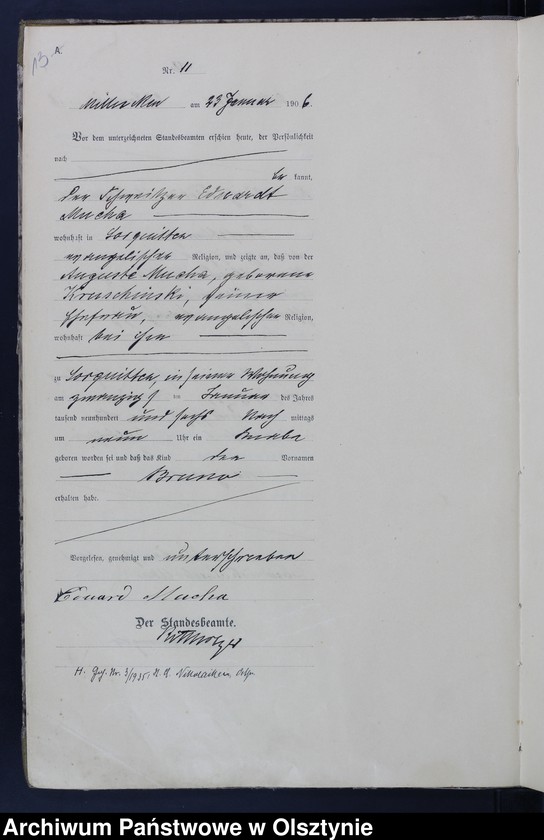 13
A.
Nr. 11
am 23 Januar 1906.
Vor dem unterzeichneten Standesbeamten erschien heute, der Persönlichkeit
nach
be kannt,
der Schweitzer Eduardt
Mucha
wohnhaft in Sorquitten
evangelischer Religion, und zeigte an, daß von der
Auguste Mucha, geborene
Kruschinski, seiner
Ehefrau, evangelischer Religion,
wohnhaft bei ihm
zu Sorquitten, in seiner Wohnung
am zwanzigs ten Januar des Jahres
tausend neunhundert und sechs Nach mittags
um neun Uhr ein Knabe
geboren worden sei und daß das Kind den Vornamen
Bruno
erhalten habe.
Vorgelesen, genehmigt und unterschrieben
Eduard Mucha
Der Standesbeamte.
H. Geh. Nr. 3/1935, St. A. Nikolaiken, Ostpr.
Archiwum Państwowe w Olsztynie